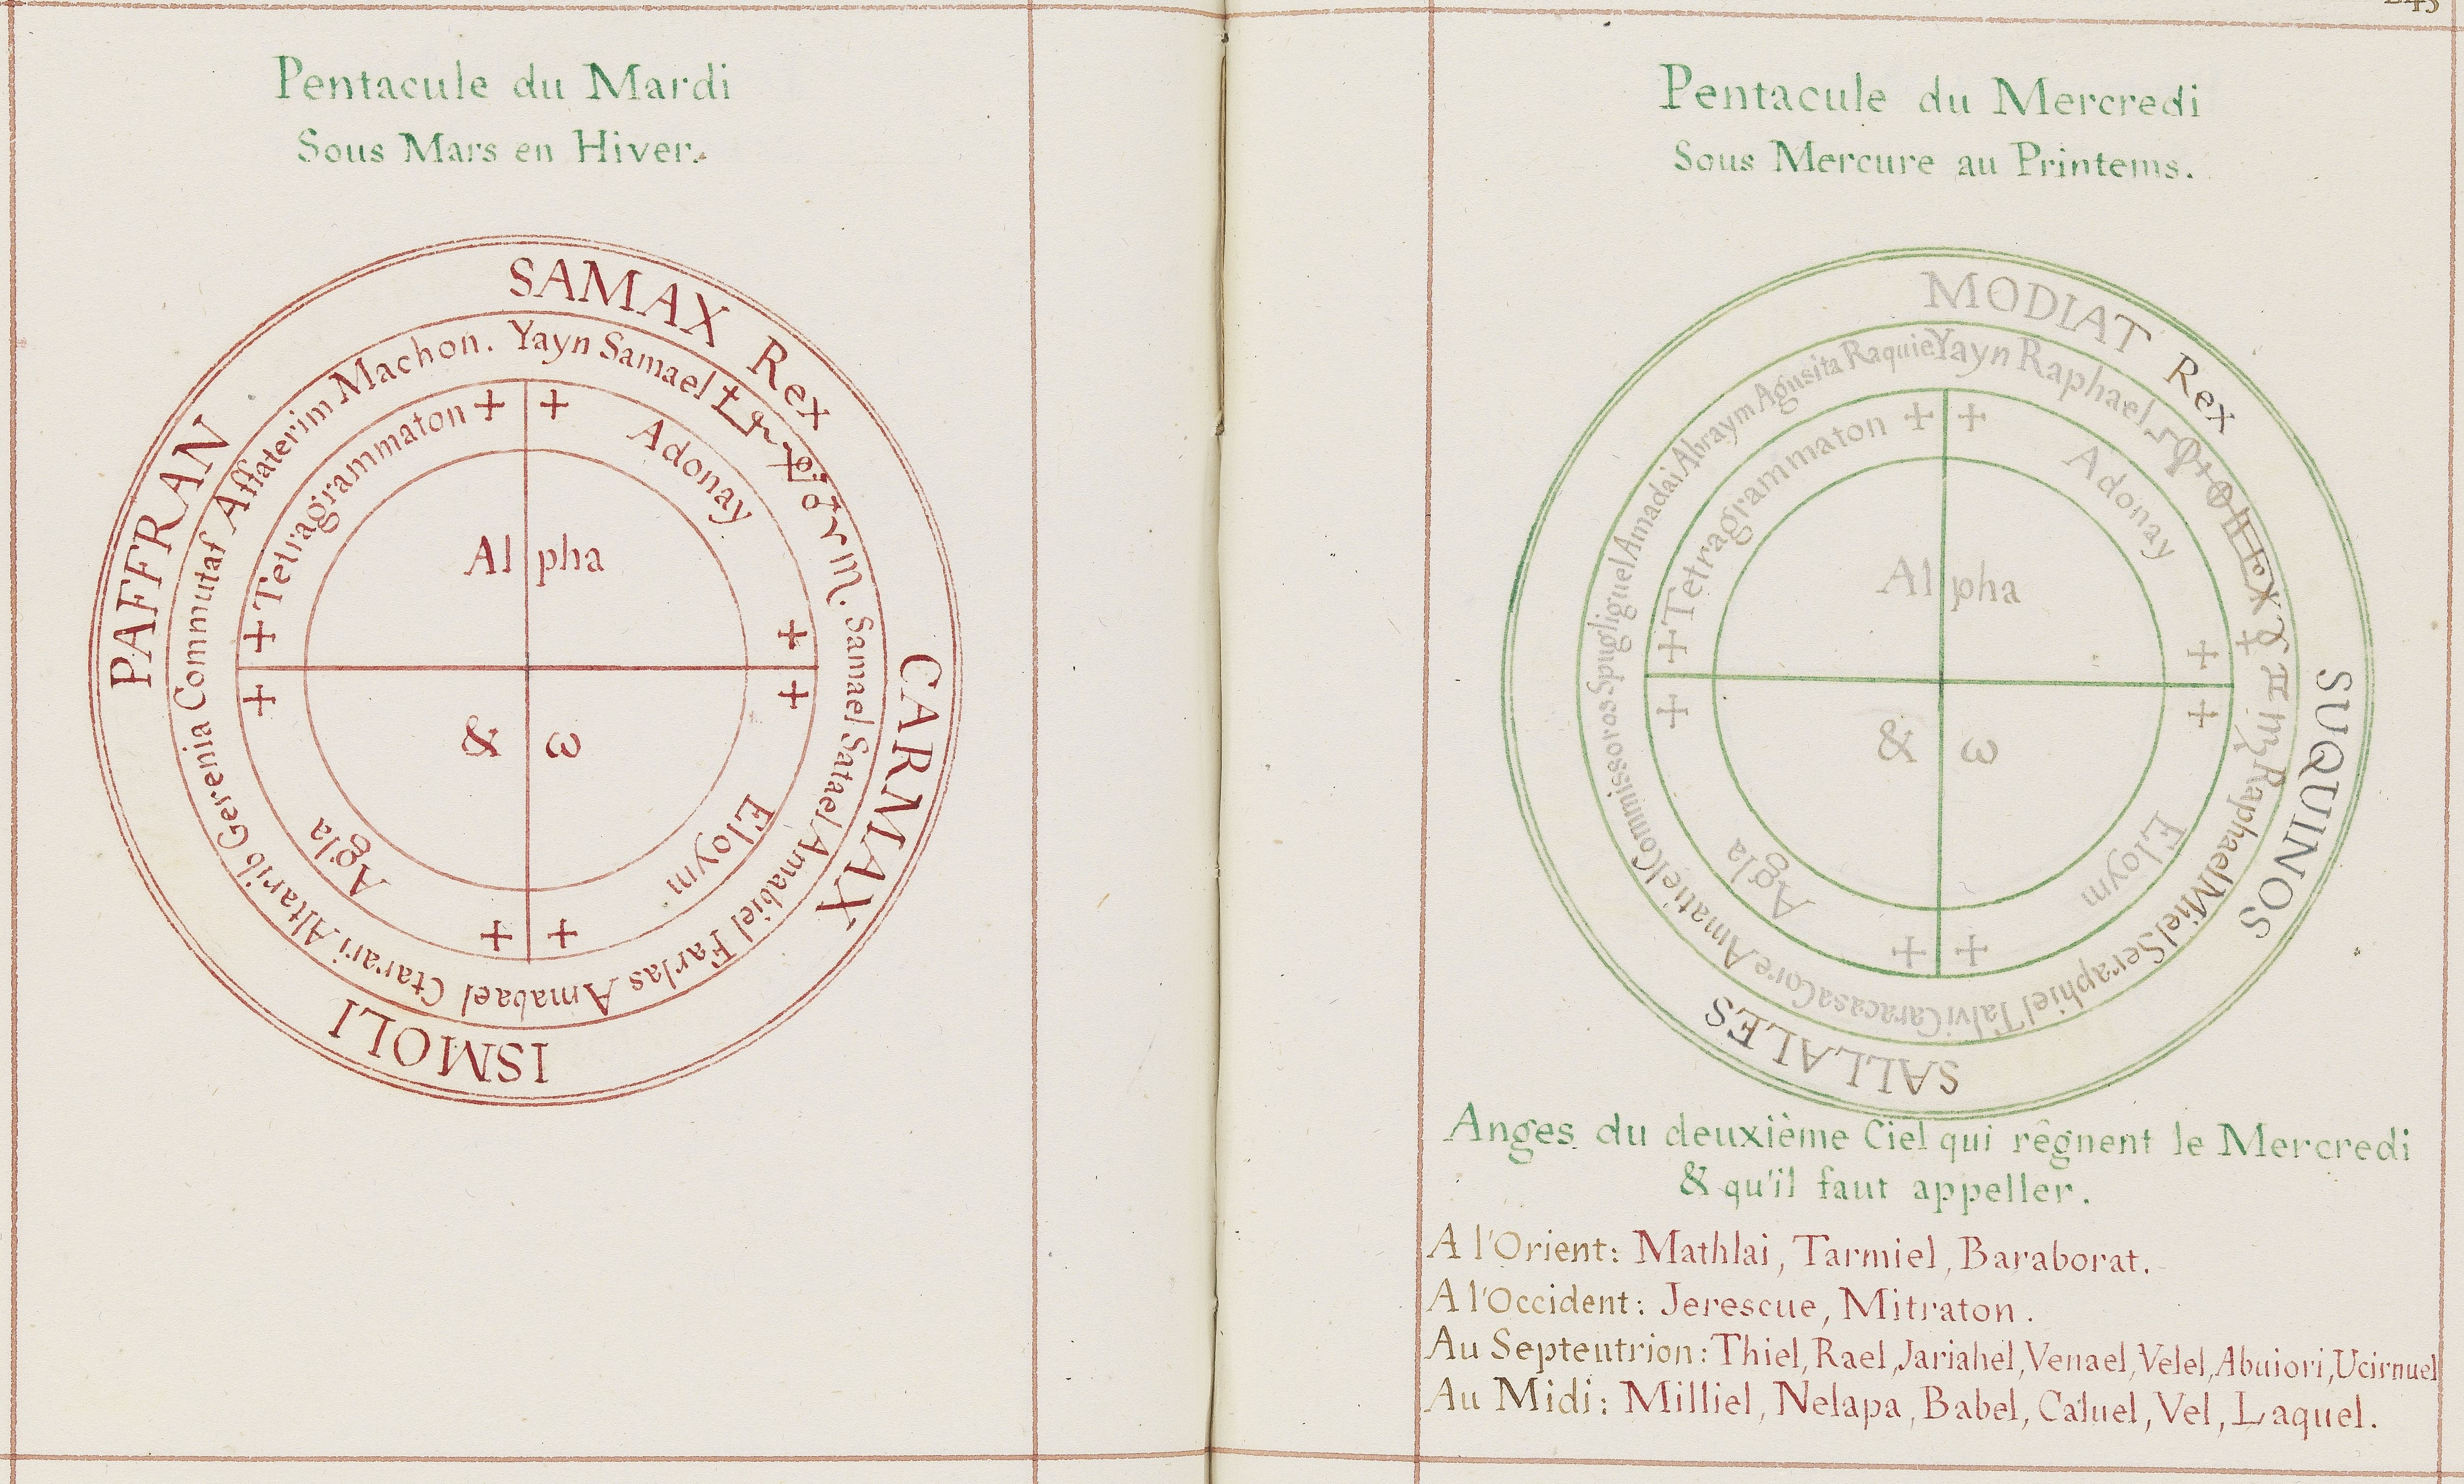 Pentacule du Mardi
Sous Mars en Hiver.
SAMAX Rex
CARMAX
ISMOLI
PAFFRAN
Yayn Samael
Samael Satael Amabiel Farlas Amabael Ctarari Altarib Gerenia Commutaf Affaterim Machon.
+ Adonay +
+ Eloym +
+ Agla +
+ Tetragrammaton +
Al pha
& ω
245
Pentacule du Mercredi
Sous Mercure au Printems.
MODIAT Rex
SUQUINOS
SALLALES
Yayn Raphael
Raphael Miel Seraphiel Talvi Caracasa Core Amatiel Commissoros Spugliguel Amadai Abraym Agusita Raquie
+ Adonay +
+ Eloym +
+ Agla +
+ Tetragrammaton +
Al pha
& ω
Anges du deuxième Ciel qui rêgnent le Mercredi
& qu'il faut appeller.
A l'Orient: Mathlai, Tarmiel, Baraborat.
A l'Occident: Jerescue, Mitraton.
Au Septentrion: Thiel, Rael, Jariahel, Venael, Velel, Abuiori, Ucirnuel
Au Midi: Milliel, Nelapa, Babel, Caluel, Vel, Laquel.